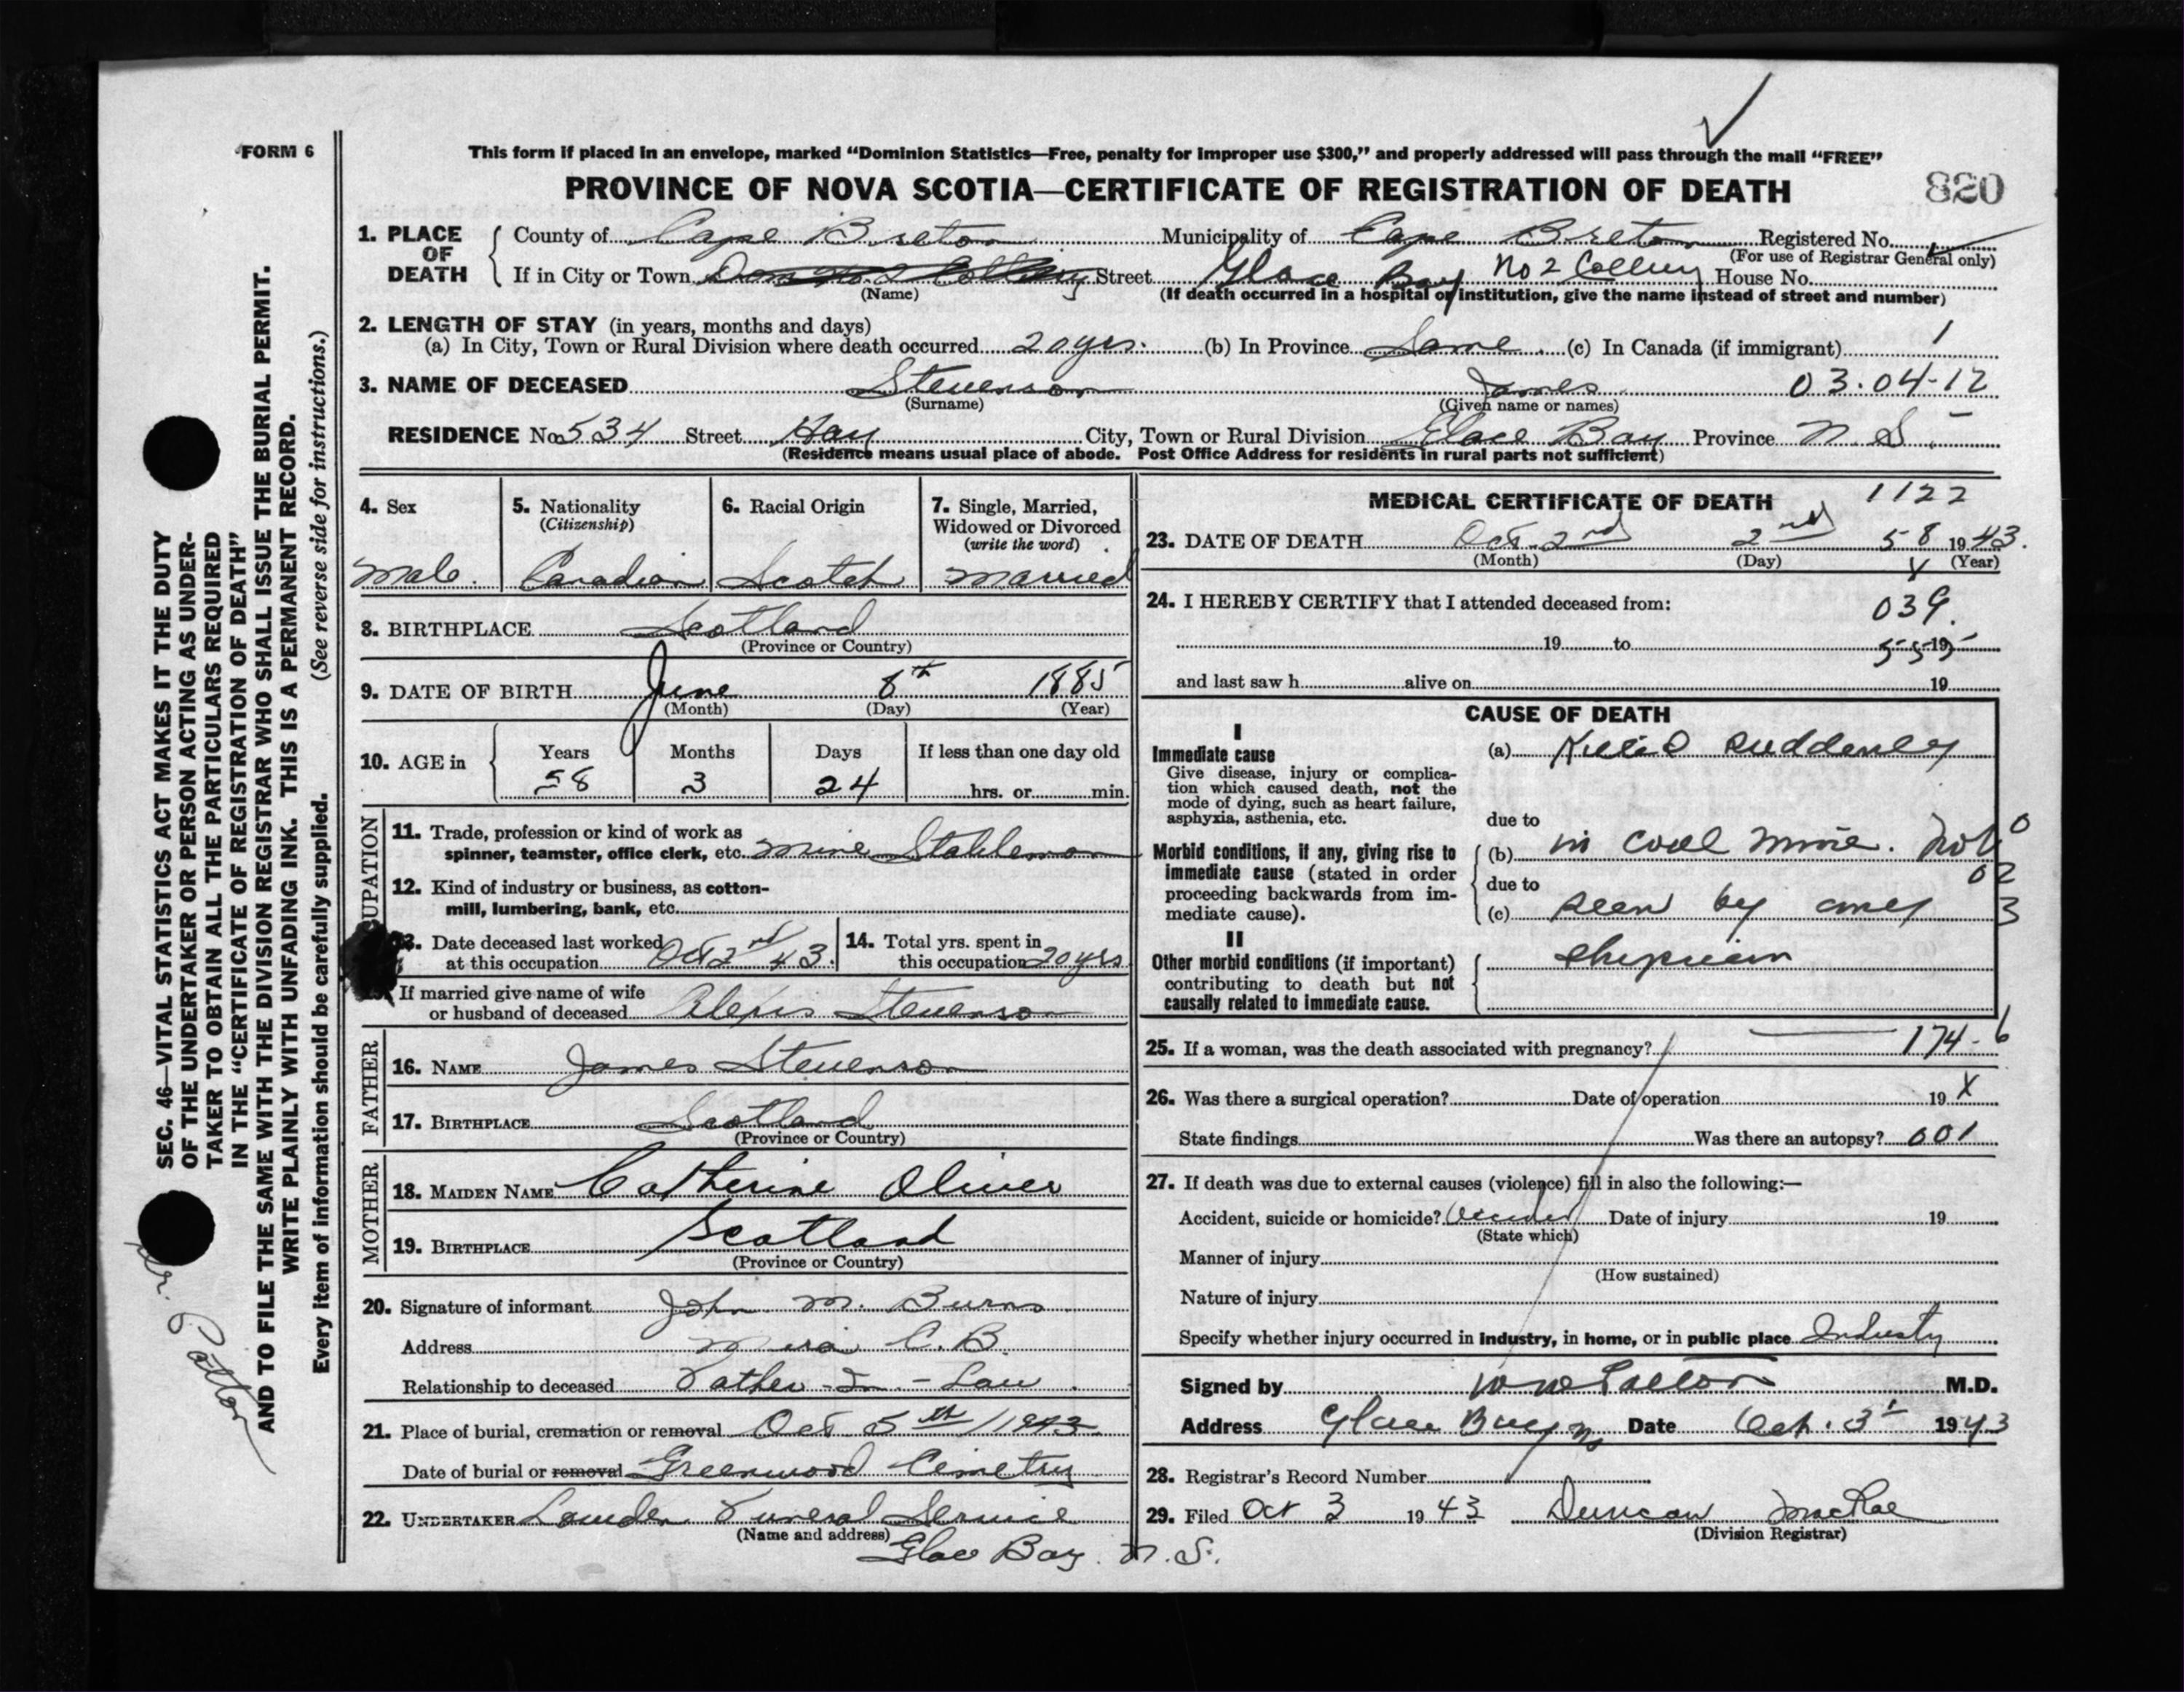 FORM 6
This form if placed in an envelope, marked “Dominion Statistics—Free, penalty for improper use $300,” and properly addressed will pass through the mail “FREE”
PROVINCE OF NOVA SCOTIA—CERTIFICATE OF REGISTRATION OF DEATH
820
1. PLACE OF DEATH
County of Cape Breton Municipality of Cape Breton Registered No.
(For use of Registrar General only)
If in City or Town Street Glace Bay No 2 Colliery House No.
(Name) (If death occurred in a hospital or institution, give the name instead of street and number)
2. LENGTH OF STAY (in years, months and days)
(a) In City, Town or Rural Division where death occurred 20 yrs. (b) In Province Same (c) In Canada (if immigrant) 1
3. NAME OF DECEASED Stevenson James 03.04-12
(Surname) (Given name or names)
RESIDENCE No. 534 Street Hay City, Town or Rural Division Glace Bay Province N. S.
(Residence means usual place of abode. Post Office Address for residents in rural parts not sufficient)
4. Sex
Male
5. Nationality
(Citizenship)
Canadian
6. Racial Origin
Scotch
7. Single, Married,
Widowed or Divorced
(write the word)
Married
8. BIRTHPLACE Scotland
(Province or Country)
9. DATE OF BIRTH June 8th 1885
(Month) (Day) (Year)
10. AGE in
Years Months Days If less than one day old
58 3 24 hrs. or min.
OCCUPATION
11. Trade, profession or kind of work as
spinner, teamster, office clerk, etc. Mine Stableman
12. Kind of industry or business, as cotton-
mill, lumbering, bank, etc.
13. Date deceased last worked
at this occupation Oct 2nd 43.
14. Total yrs. spent in
this occupation 20 yrs
If married give name of wife
or husband of deceased Alexis Stevenson
FATHER
16. NAME James Stevenson
17. BIRTHPLACE Scotland
(Province or Country)
MOTHER
18. MAIDEN NAME Catherine Oliver
19. BIRTHPLACE Scotland
(Province or Country)
20. Signature of informant John M. Burns
Address Mira C.B.
Relationship to deceased Father-In-Law.
21. Place of burial, cremation or removal Oct 5th/1943
Date of burial or removal Greenwood Cemetry
22. UNDERTAKER Funeral Service
(Name and address)
Glace Bay. N. S.
MEDICAL CERTIFICATE OF DEATH 1122
23. DATE OF DEATH Oct. 2nd 2nd 58 1943.
(Month) (Day) (Year)
24. I HEREBY CERTIFY that I attended deceased from: 039.
19 to 555 19
and last saw h alive on 19
CAUSE OF DEATH
I
Immediate cause
Give disease, injury or complica-
tion which caused death, not the
mode of dying, such as heart failure,
asphyxia, asthenia, etc.
(a) Killed suddenly
due to
Morbid conditions, if any, giving rise to
immediate cause (stated in order
proceeding backwards from im-
mediate cause).
(b) in coal mine. Not 0
due to 02
(c) seen by any 3
II
Other morbid conditions (if important)
contributing to death but not
causally related to immediate cause.
physician
25. If a woman, was the death associated with pregnancy? 174-6
26. Was there a surgical operation? Date of operation 19 X
State findings Was there an autopsy? 001
27. If death was due to external causes (violence) fill in also the following:—
Accident, suicide or homicide? Accident Date of injury 19
(State which)
Manner of injury
(How sustained)
Nature of injury
Specify whether injury occurred in industry, in home, or in public place Industry
Signed by M.D.
Address Glace Bay NS Date Oct. 3 1943
28. Registrar’s Record Number
29. Filed Oct 3 1943 Duncan MacRae
(Division Registrar)
SEC. 46—VITAL STATISTICS ACT MAKES IT THE DUTY
OF THE UNDERTAKER OR PERSON ACTING AS UNDER-
TAKER TO OBTAIN ALL THE PARTICULARS REQUIRED
IN THE “CERTIFICATE OF REGISTRATION OF DEATH”
AND TO FILE THE SAME WITH THE DIVISION REGISTRAR WHO SHALL ISSUE THE BURIAL PERMIT.
WRITE PLAINLY WITH UNFADING INK. THIS IS A PERMANENT RECORD.
Every item of information should be carefully supplied. (See reverse side for instructions.)
Dr. Patton